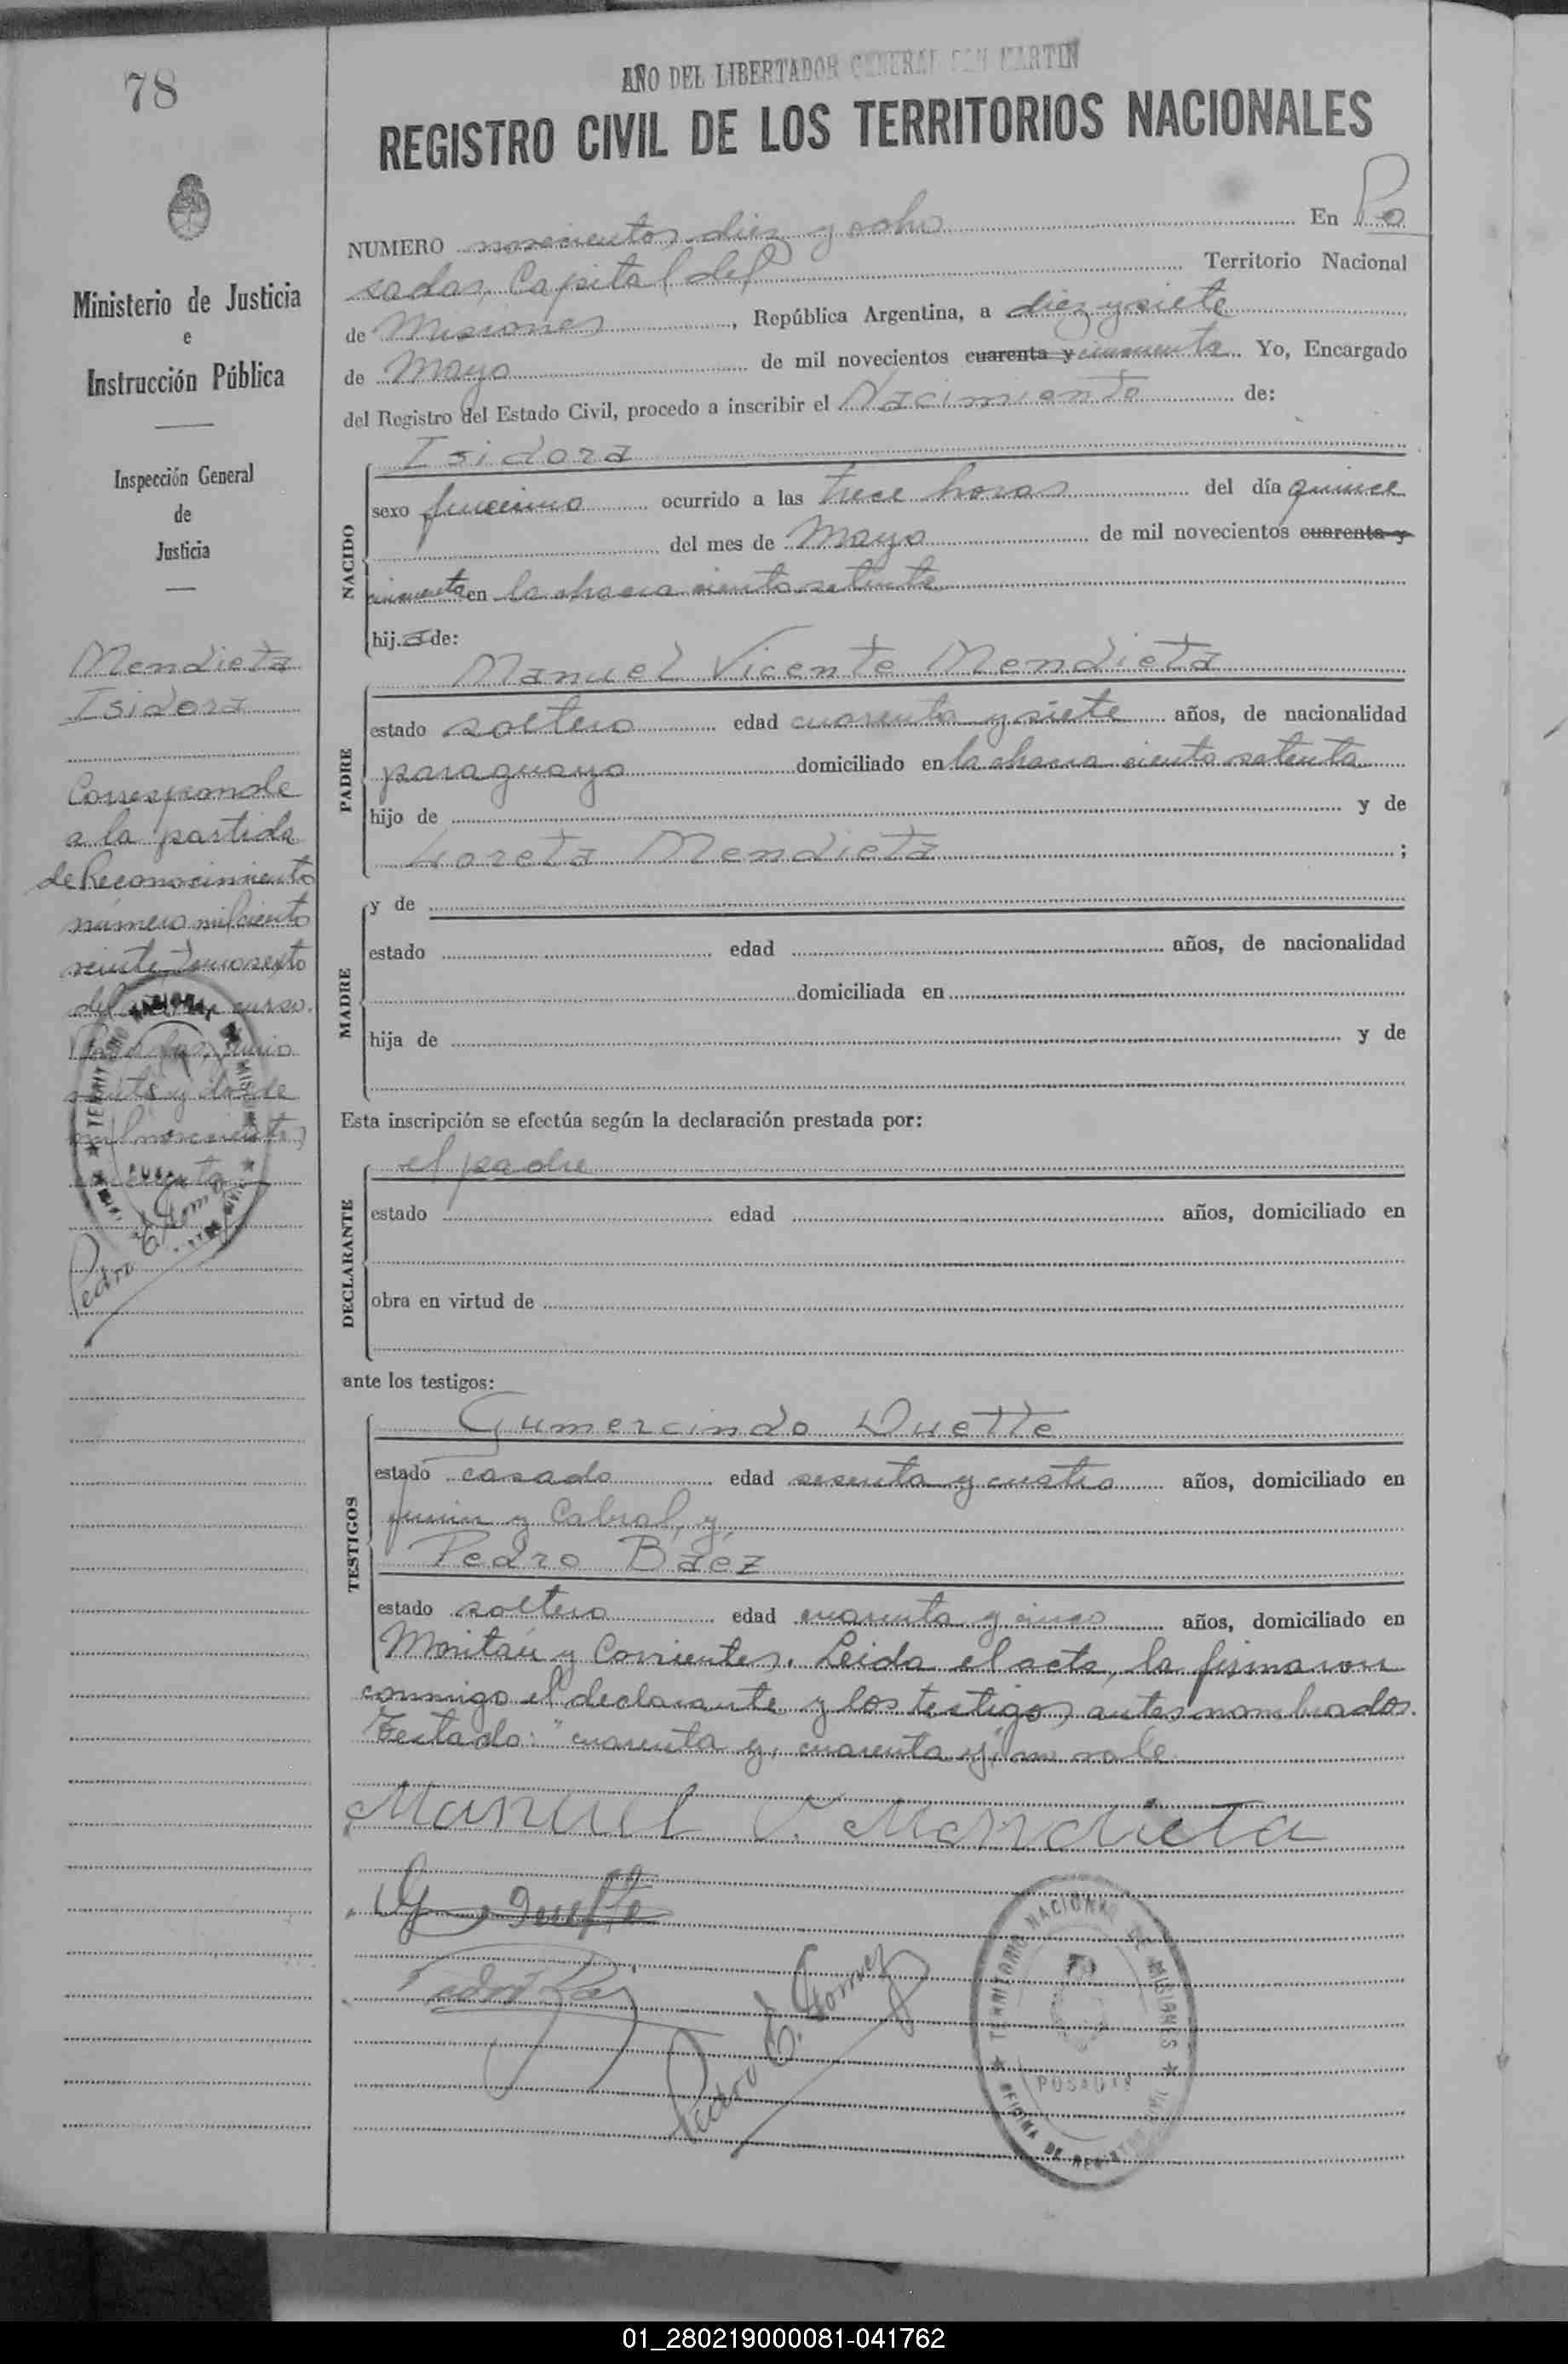 78
AÑO DEL LIBERTADOR GENERAL SAN MARTIN
REGISTRO CIVIL DE LOS TERRITORIOS NACIONALES
NUMERO novecientos diez y ocho En Po
sadas, Capital del Territorio Nacional
de Misiones, República Argentina, a diez y siete
de Mayo de mil novecientos cuarenta y cincuenta Yo, Encargado
del Registro del Estado Civil, procedo a inscribir el Nacimiento de:
NACIDO
Isidora
sexo femenino ocurrido a las trece horas del día quince
del mes de Mayo de mil novecientos cuarenta y
cincuenta en la chacra ciento setenta
hija de:
PADRE
Manuel Vicente Mendieta
estado soltero edad cuarenta y siete años, de nacionalidad
paraguayo domiciliado en la chacra ciento setenta
hijo de y de
Loreta Mendieta ;
MADRE
y de
estado edad años, de nacionalidad
domiciliada en
hija de y de
Esta inscripción se efectúa según la declaración prestada por:
DECLARANTE
el padre
estado edad años, domiciliado en
obra en virtud de
ante los testigos:
TESTIGOS
Gumercindo Duette
estado casado edad sesenta y cuatro años, domiciliado en
Junin y Cabral, y,
Pedro Báez
estado soltero edad cuarenta y cinco años, domiciliado en
y Corrientes. Leida el acta, la firmaron
conmigo el declarante y los testigos antes nombrados.
Testado: "cuarenta y, cuarenta y", no vale
Manuel V. Mendieta
G Duette
Pedro Báez
Pedro E. Gomez
TERRITORIO NACIONAL DE MISIONES
POSADAS
OFICINA DE REGISTRO CIVIL
Ministerio de Justicia
e
Instrucción Pública
Inspección General
de
Justicia
Mendieta
Isidora
Corresponde
a la partida
de Reconocimiento
número mil ciento
veinte, tomo sexto
del curso.
Posadas, Junio
y dos de
mil novecientos
cincuenta
Pedro E. Gomez
TERRITORIO NACIONAL DE MISIONES
01_280219000081-041762